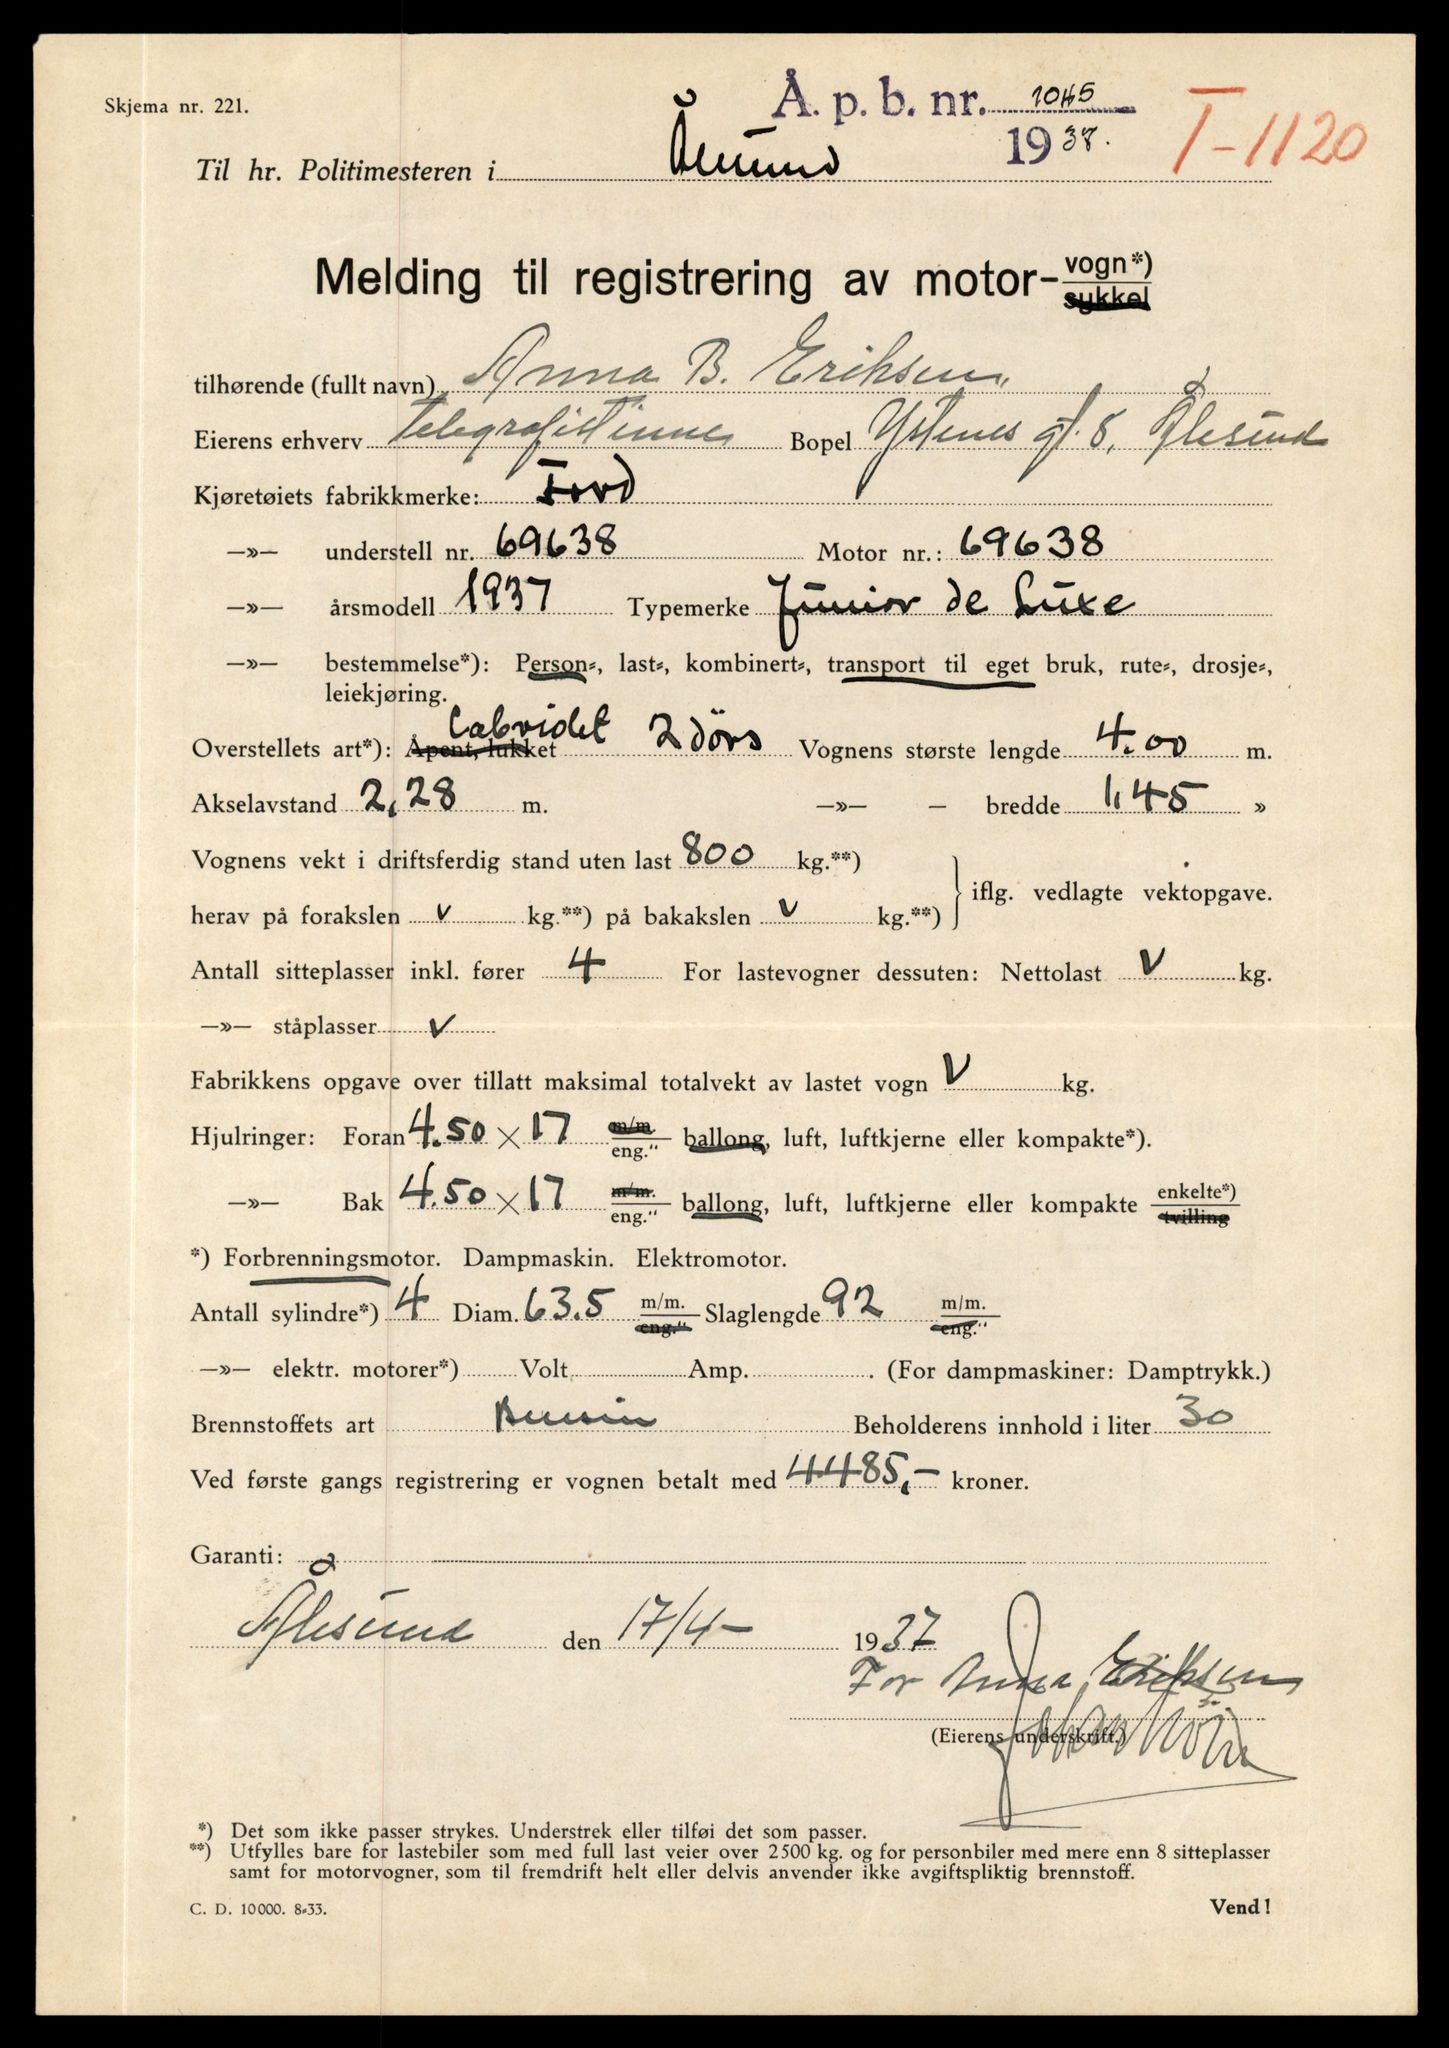 Skjema nr. 221.
Å. p. b. nr. 1045
1938.
T-1120
Til hr. Politimesteren i Ålesund
Melding til registrering av motor-vogn*)
sykkel
tilhørende (fullt navn) Anna B. Eriksen.
Eierens erhverv telegrafistinne Bopel Ystenes gt. 8, Ålesund
Kjøretøiets fabrikkmerke: Ford
—»— understell nr. 69638 Motor nr.: 69638
—»— årsmodell 1937 Typemerke Junior de Luxe
—»— bestemmelse*): Person-, last-, kombinert-, transport til eget bruk, rute-, drosje-,
leiekjøring.
Cabriolet 2 dörs
Overstellets art*): Åpent, lukket Vognens største lengde 4.00 m.
Akselavstand 2,28 m. —»— – bredde 1,45 »
Vognens vekt i driftsferdig stand uten last 800 kg.**)
herav på forakslen v kg.**) på bakakslen v kg.**) iflg. vedlagte vektopgave.
Antall sitteplasser inkl. fører 4 For lastevogner dessuten: Nettolast v kg.
—»— ståplasser v
Fabrikkens opgave over tillatt maksimal totalvekt av lastet vogn v kg.
Hjulringer: Foran 4.50 × 17 m/m eng." ballong, luft, luftkjerne eller kompakte*).
—»— Bak 4.50 × 17 m/m. eng." ballong, luft, luftkjerne eller kompakte enkelte*) tvilling
*) Forbrenningsmotor. Dampmaskin. Elektromotor.
Antall sylindre*) 4 Diam. 63.5 m/m. eng." Slaglengde 92 m/m. eng."
—»— elektr. motorer*) Volt Amp. . (For dampmaskiner: Damptrykk.)
Brennstoffets art Bensin Beholderens innhold i liter 30
Ved første gangs registrering er vognen betalt med 4485,- kroner.
Garanti:
Ålesund den 17/4- 1937
For Anna Eriksen
(Eierens underskrift.)
*) Det som ikke passer strykes. Understrek eller tilføi det som passer.
**) Utfylles bare for lastebiler som med full last veier over 2500 kg. og for personbiler med mere enn 8 sitteplasser
samt for motorvogner, som til fremdrift helt eller delvis anvender ikke avgiftspliktig brennstoff.
C. D. 10000. 8-33.
Vend!